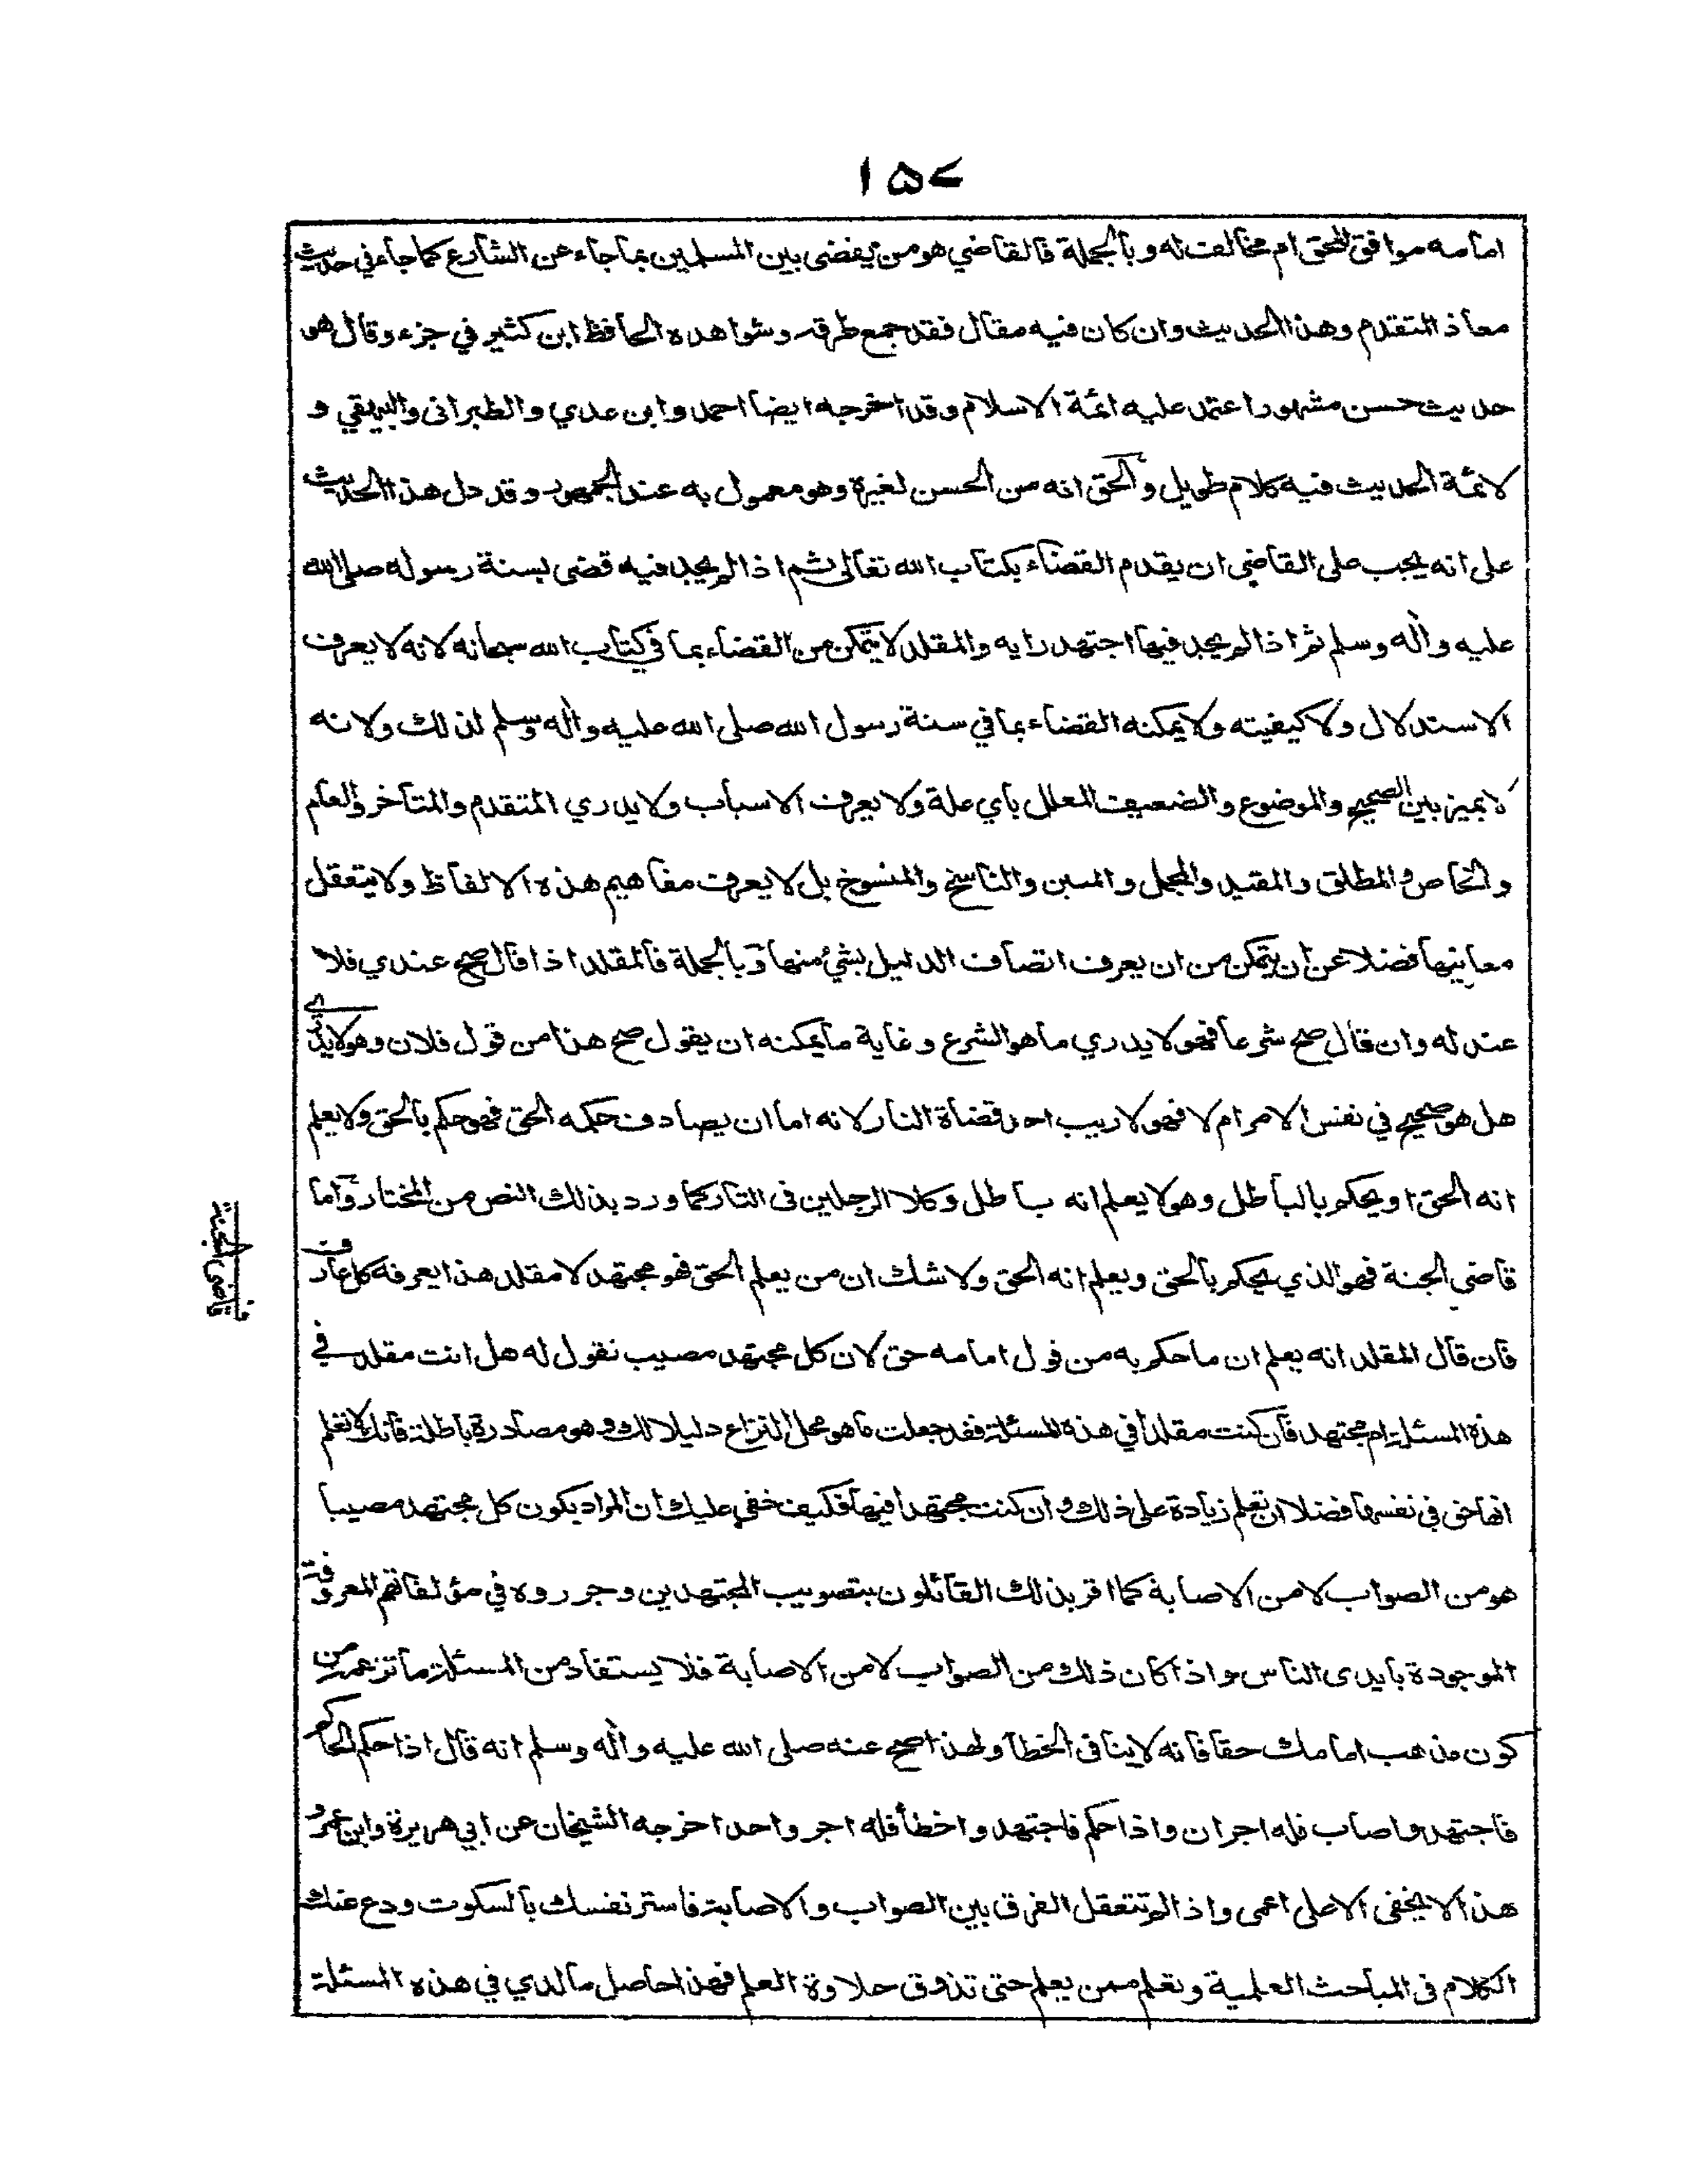 ١٥٧
امامه موافق للحق ام مخالف له وبالجملة فالقاضي هو من يقضى بين المسلمين بما جاء عن الشارع كما جاء في حديث
معاذ المتقدم وهذا الحديث وان كان فيه مقال فقد جمع طرقه وشواهده الحافظ ابن كثير في جزء وقال هو
حديث حسن مشهور اعتمد عليه ائمة الاسلام وقد اخرجه ايضا احمد وابن عدي والطبرانى والبيهقي و
لائمة الحديث فيه كلام طويل والحق انه من الحسن لغيره وهو معمول به عند الجمهور وقد دل هذا الحديث
على انه يجب على القاضي ان يقدم القضاء بكتاب الله تعالى ثم اذا لم يجد فيه قضى بسنة رسوله صلى الله
عليه وأله وسلم ثم اذا لم يجد فيها اجتهد رايه والمقلد لا يتمكن من القضاء بما في كتاب الله سبحانه لانه لا يعرف
الاستدلال ولا كيفيته ولا يمكنه القضاء بما في سنة رسول الله صلى الله عليه وأله وسلم لذلك ولانه
لا يميز بين الصحيح والموضوع والضعيف المعلل بأي علة ولا يعرف الاسباب ولا يدري المتقدم والمتأخر والعام
والخاص والمطلق والمقيد والمجمل والمبين والناسخ والمنسوخ بل لا يعرف مفاهيم هذه الالفاظ ولا يتعقل
معانيها فضلا عن ان يتمكن من ان يعرف اتصاف الدليل بشيء منها وبالجملة فالمقلد اذا قال صح عندي فلا
عند له وان قال صح شرعا فهو لا يدري ما هو الشرع وغاية ما يمكنه ان يقول صح هذا من قول فلان وهو لا يدري
هل هو صحيح في نفس الامر ام لا فهو لا ريب احد قضاة النار لانه اما ان يصادف حكمه الحق فهو حكم بالحق ولا يعلم
انه الحق او يحكم بالباطل وهو لا يعلم انه باطل وكلا الرجلين فى النار كما ورد بذلك النص من المختار واما
قاضي الجنة فهو الذي يحكم بالحق ويعلم انه الحق ولا شك ان من يعلم الحق فهو مجتهد لا مقلد هذا يعرفه كل عارف
قاضى الجنة
فان قال المقلد انه يعلم ان ما حكم به من قول امامه حق لان كل مجتهد مصيب نقول له هل انت مقلد في
هذه المسئلة ام مجتهد فان كنت مقلدا في هذه المسئلة فقد جعلت ما هو محل النزاع دليلا لك وهو مصادرة باطلة فانك لا تعلم
انها حق في نفسها فضلا ان تعلم زيادة على ذلك وان كنت مجتهدا فيها فكيف خفي عليك ان المراد بكون كل مجتهد مصيبا
هو من الصواب لا من الاصابة كما اقر بذلك القائلون بتصويب المجتهدين وحرروه في مؤلفاتهم المعروفة
الموجودة بايدى الناس واذا كان ذلك من الصواب لا من الاصابة فلا يستفاد من المسئلة ما تزعمه من
كون مذهب امامك حقا فانه لا ينافى الخطأ ولهذا صح عنه صلى الله عليه وأله وسلم انه قال اذا حكم الحاكم
فاجتهد واصاب فله اجران واذا حكم فاجتهد واخطأ فله اجر واحد اخرجه الشيخان عن ابي هريرة وابن عمرو
هذا لا يخفى الا على اعمى واذا لم تتعقل الفرق بين الصواب والاصابة فاستر نفسك بالسكوت ودع عنك
الكلام فى المباحث العلمية وتعلم ممن يعلم حتى تذوق حلاوة العلم فهذا حاصل ما لدي في هذه المسئلة